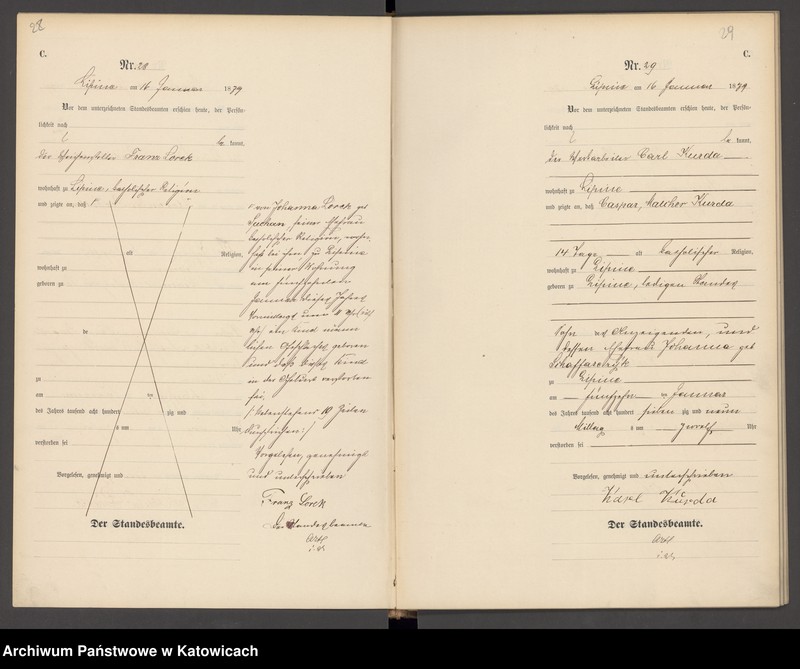 28
C.
Nr. 28
Lipine am 16 Januar 1879
Vor dem unterzeichneten Standesbeamten erschien heute, der Persön-
lichkeit nach
be kannt,
der Weichensteller Franz Lorek
wohnhaft zu Lipine, katholischer Religion
und zeigte an, daß
alt Religion,
wohnhaft zu
geboren zu
de
zu
am ten
des Jahres tausend acht hundert zig und
um Uhr
verstorben sei
Vorgelesen, genehmigt und
Der Standesbeamte.
von Johanna Lorek geb
seiner Ehefrau
katholischer Religion, wohn-
haft bei ihm zu Lipine
in seiner Wohnung
am fünfzehnten
Januar dieses Jahres
Vormittags um 8 Uhr (acht
Uhr) ein Kind männ
lichen Geschlechts geboren
und daß dieses Kind
in der Geburt verstorben
sei.
Vorstehend 10 Zeilen
durchstrichen :/
Vorgelesen, genehmigt
und unterschrieben
Franz Lorek
Der Standesbeamte
29
C.
Nr. 29
Lipine am 16 Januar 1879
Vor dem unterzeichneten Standesbeamten erschien heute, der Persön-
lichkeit nach
be kannt,
der Carl Kurda
wohnhaft zu Lipine
und zeigte an, daß Caspar, Kurda
14 Tage alt katholischer Religion,
wohnhaft zu Lipine
geboren zu Lipine, ledigen Standes
Sohn des Anzeigenden, und
dessen Ehefrau Johanna geb
Schaffarczyk
zu Lipine
am fünfzehn ten Januar
des Jahres tausend acht hundert sieben zig und neun
Mittag um zwölf Uhr
verstorben sei
Vorgelesen, genehmigt und unterschrieben
Karl Kurda
Der Standesbeamte.
Archiwum Państwowe w Katowicach